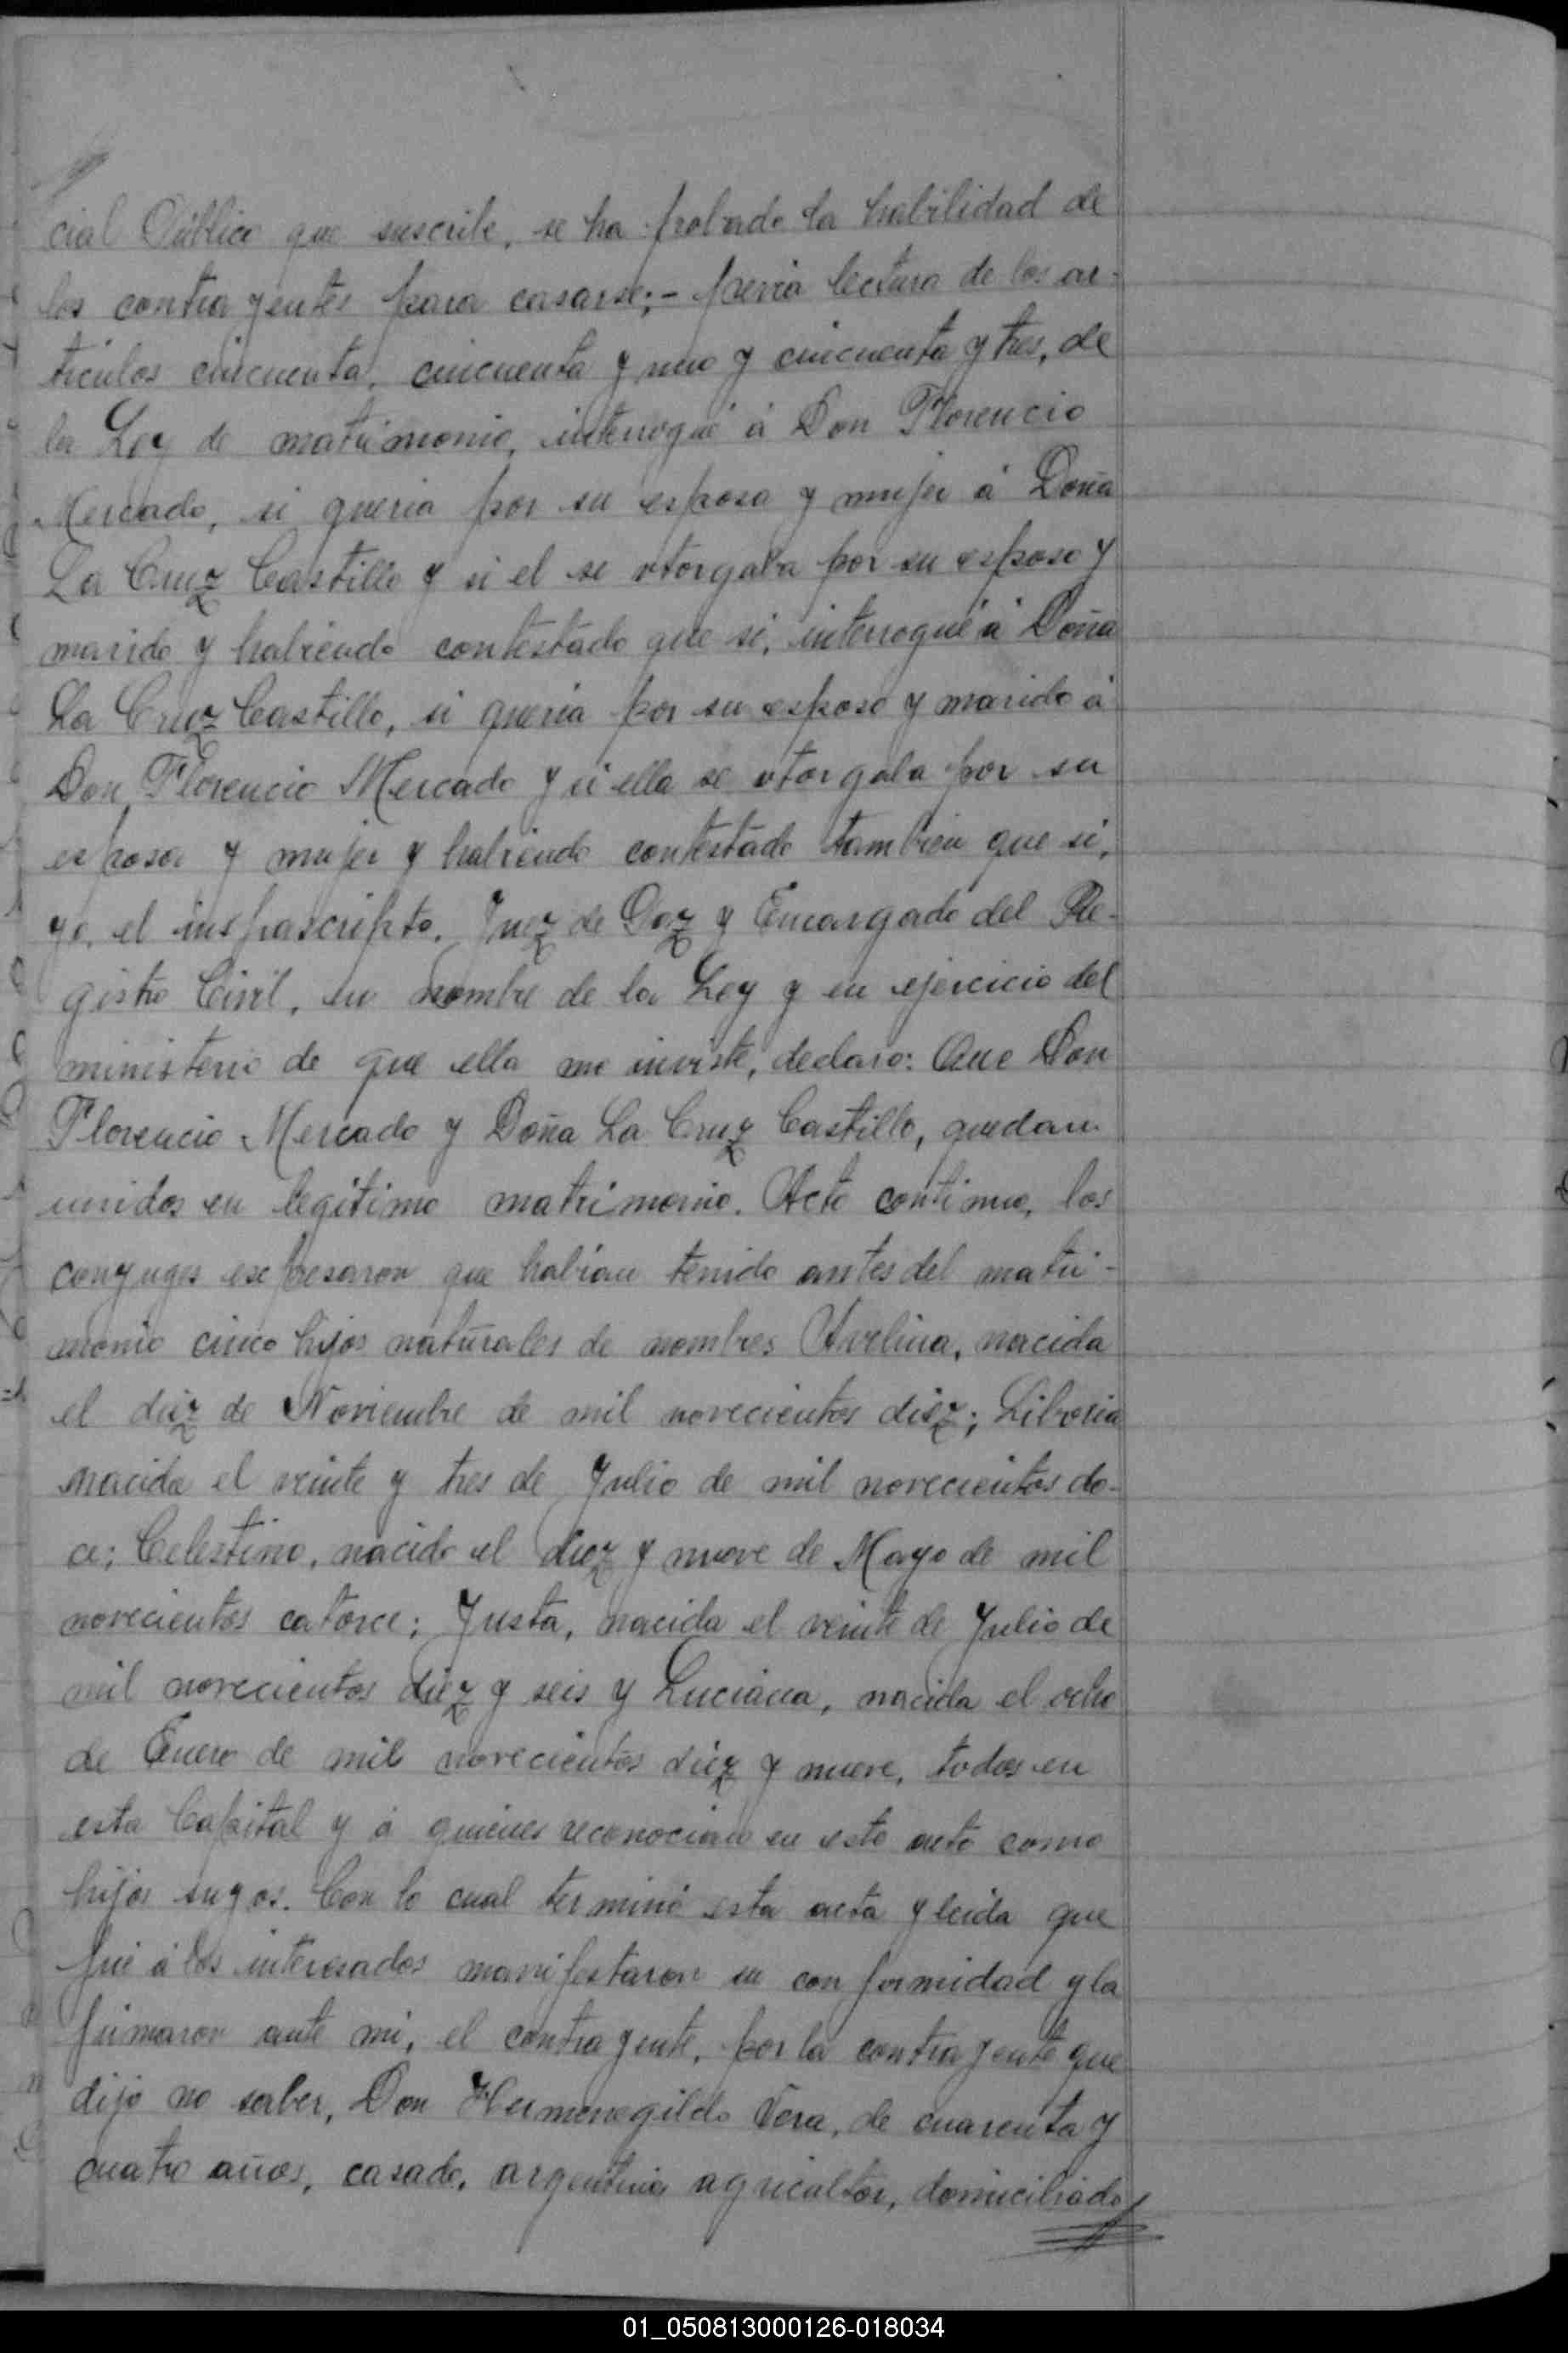 cial Público que suscribe, se ha probado la habilidad de
los contrayentes para casarse;- previa lectura de los ar-
tículos cincuenta, cincuenta y uno y cincuenta y tres, de
la Ley de matrimonio, interrogué á Don Florencio
Mercado, si queria por su esposa y mujer á Doña
La Cruz Castillo y si el se otorgaba por su esposo y
marido y habiendo contestado que si, interrogué á Doña
La Cruz Castillo, si queria por su esposo y marido á
Don Florencio Mercado y si ella se otorgaba por su
esposa y mujer y habiendo contestado tambien que si,
yo, el inspascripto, Juez de Paz y Encargado del Re-
gistro Civil, en nombre de la Ley y en ejercicio del
ministerio de que ella me inviste, declaro: Que Don
Florencio Mercado y Doña La Cruz Castillo, quedan
unidos en legítimo matrimonio. Acto continuo, los
conyuges expresaron que habían tenido antes del matri-
monio cinco hijos naturales de nombres Avelina, nacida
el diez de Noviembre de mil novecientos diez; Liboria
nacida el veinte y tres de Julio de mil novecientos do-
ce; Celestino, nacido el diez y nueve de Mayo de mil
novecientos catorce; Justa, nacida el veinte de Julio de
mil novecientos diez y seis y Luciana, nacida el ocho
de Enero de mil novecientos diez y nueve, todos en
esta Capital y á quienes reconocian en este acto como
hijos suyos. Con lo cual terminó esta acta y leida que
fué á los interesados manifestaron su conformidad y la
firmaron ante mi, el contrayente, por la contrayente que
dijo no saber, Don Hermenegildo Vera, de cuarenta y
cuatro años, casado, argentino agricultor, domiciliado
01_050813000126-018034